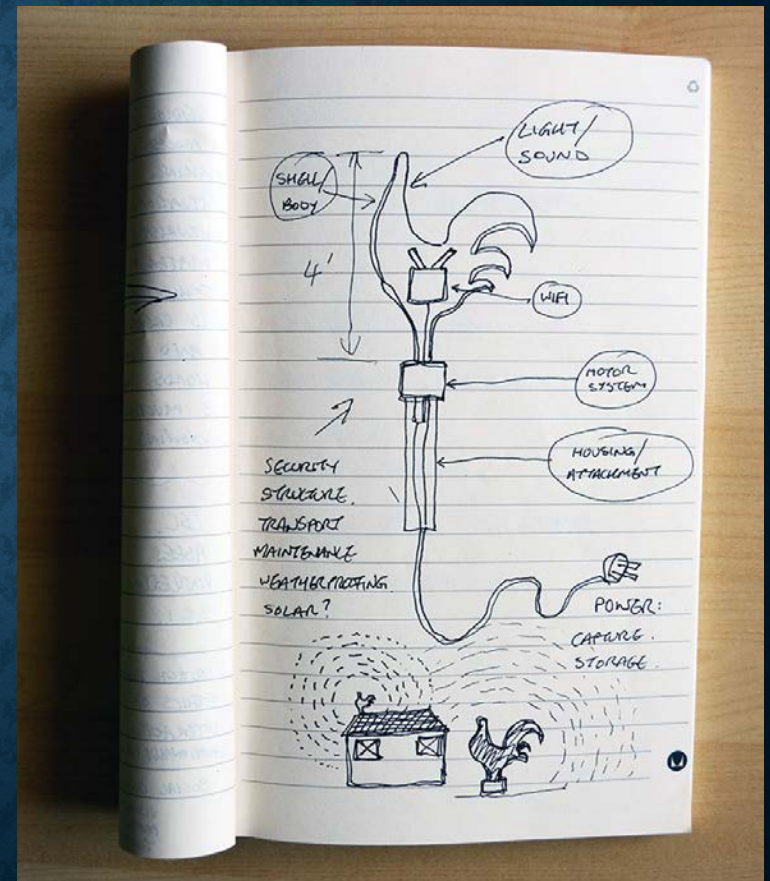 LIGHT/
SOUND
SHELL/
BODY
4'
WIFI
MOTOR
SYSTEM
HOUSING/
ATTACHMENT
SECURITY
STRUCTURE.
TRANSPORT
MAINTENANCE
WEATHERPROOFING.
SOLAR?
POWER:
CAPTURE.
STORAGE.